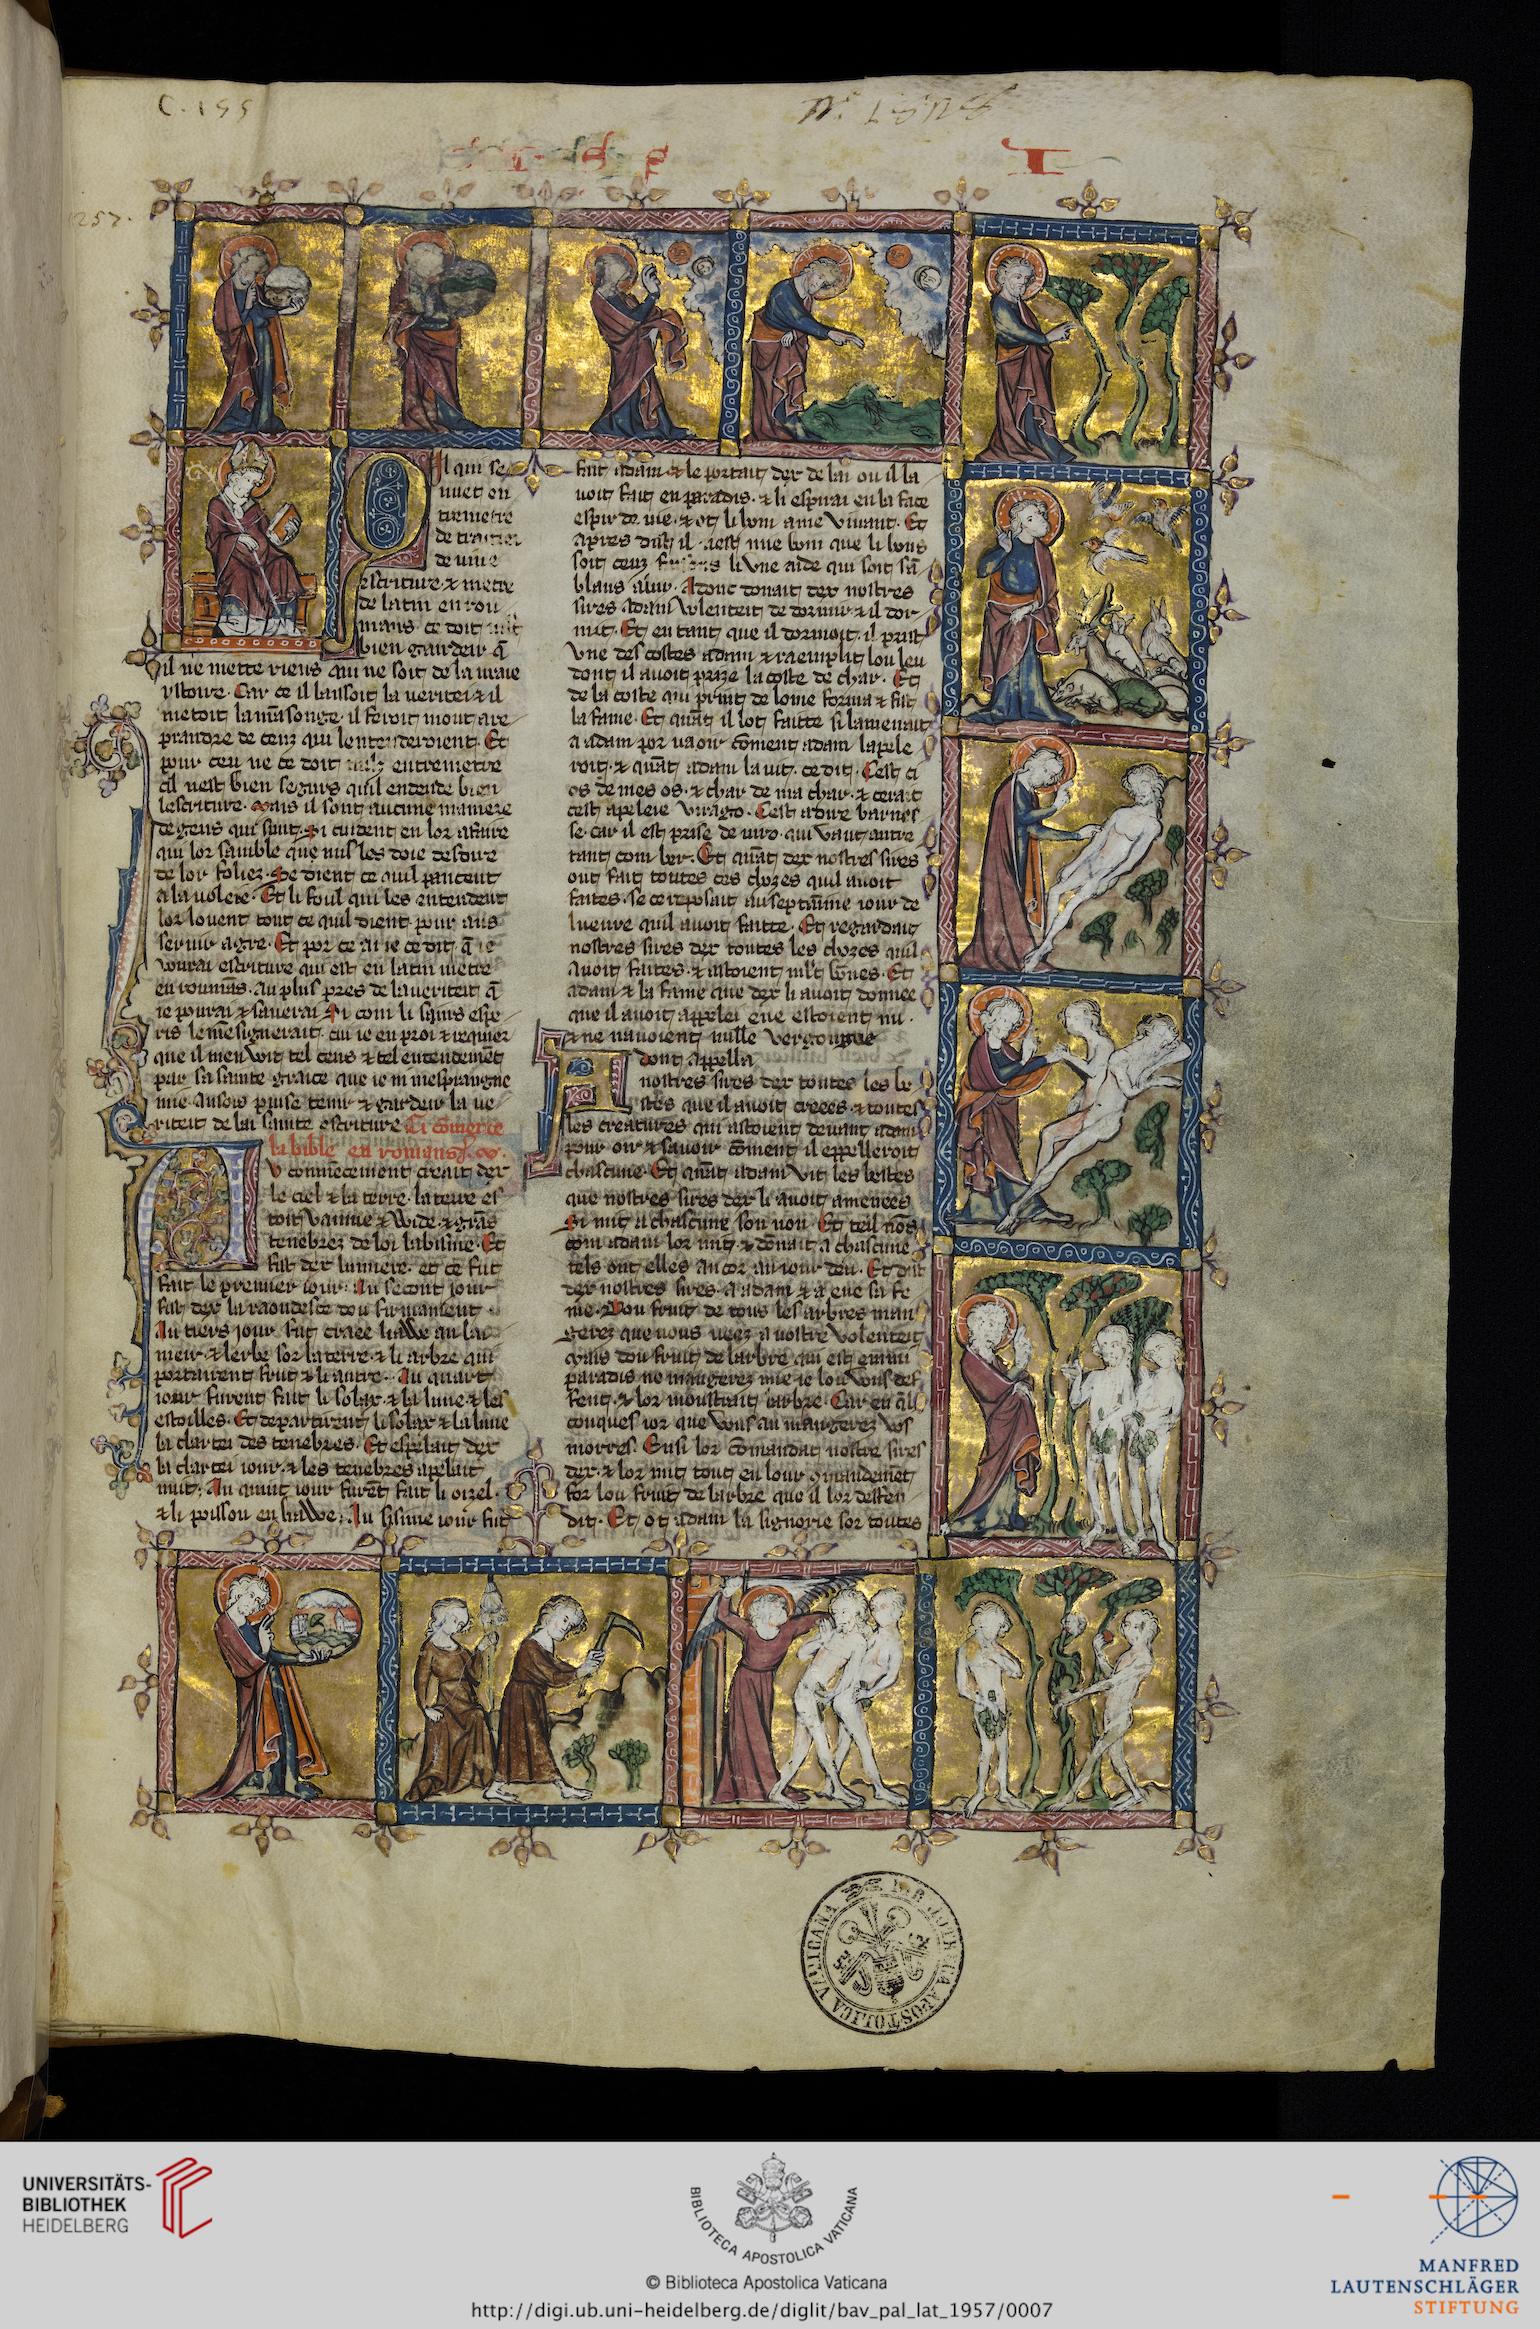 C. 155
257.
I
Il qui se
uuet en
tremetre
de traitier
de uiue
escriture ⁊ metre
de latin en rou
mans ce doit mlt
bien gardeir q̃
il ne mette riens qui ne soit de la uraie
ystoire. Car ce il laissoit la ueritei ⁊ il
metoit la mãsonge. il feroit mout are
prandre de ceuz qui lentenderoient. Et
pour ceu ne ce doit nulz entremetre
cil nest bien segurs quil entende bien
lescriture. Mais il sont aucune maniere
de gens qui sunt. Si cuident en lor afaire
qui lor samble que nuls les doie desdire
de lor foliez. Se dient ce quil pancent
a la uoleie. Et li foul qui les entendent
lor louent tout ce quil dient pour aus
seruir a gre. Et por ce ai ie ce dit q̃ ie
vourai escriture qui est en latin metre
en roumãs. au plus pres de la ueriteit q̃
ie pourai ⁊ sauerai Si com li s. espe
ris le mesignerait. cui ie en proi ⁊ requier
que il men woit tel cens ⁊ tel entendemẽt
par sa sainte graice que ie ni mespraingne
mie. ansois puise tenir ⁊ gardeir la ue
riteit de lai sainte escriture Ci cõmence
la bible en romans
v commecement creait dex
le ciel ⁊ la terre. la terre es
toit vainne ⁊ wide. ⁊ grãs
tenebrez de loi labisme. Et
fist dex lumiere. et ce fut
fait le premier iour. Au secont iour
fist dex la raoudesce dou firmament
Au tiers iour fut craee liawe an lai
meir. ⁊ lerbe sor la terre. ⁊ li arbre qui
portairent fruit ⁊ li autre. Au quart
iour furent fait li solax. ⁊ la lune ⁊ les
estoilles. Et departirent li solax ⁊ la lune
la clartei des tenebres. Et espelait dex
la clartei iour. ⁊ les tenebres apelait
nuit. Au quint iour furẽt fait li oizel.
⁊ li poisson en liawe. Au sisime iour fist
fait adam. ⁊ le portait dex de lai ou il la
uoit fait en paradis. ⁊ li espirai en la face
espir de uie. ⁊ ot li hom ame viuant. Et
apres dist il nest mie bom que li hons
soit ceuz li vne aide qui soit sã
blans a lui. Adonc donait dex nostres
sires adam volenteit de dormir ⁊ il dor
mit. Et en tant que il dormoit. il prist
vne des costes adam ⁊ raemplit lou leu
dont il auoit prize la coste de char. Et
de la coste qui print de lome forma ⁊ fist
la fame. Et quãt il lot faitte si lamenait
a adam por ueoir cõment adam lapele
roit. ⁊ quãt adam la uit. ce dit. Cest ci
os de mes os. ⁊ char de ma char. ⁊ cerait
cest apeleie virago. Cest a dire barnes
se. car il est prise de uiro. qui vaut autre
tant com ber. Et quãt dex nostres sires
out fait toutes ces chozes quil auoit
faites. se ce reposait au septãime iour de
lueure quil auoit faitte. Et regardait
nostres sires dex toutes les chozes quil
auoit faites. ⁊ astoient mlt bones. Et
adam ⁊ la fame que dex li auoit donnee
que il auoit appelei eue estoient nu.
⁊ ne nauoient nulle vergongne
dont appella
nostres sires dex toutes les be
stes que il auoit creees. ⁊ toutes
les creatures qui astoient deuant adam
pour oir ⁊ sauoir cõment il appelleroit
chascune. Et quãt adam vit les bestes
que nostres sires dex li auoit amenees
Si mit a chascune son non. Et teil nõs
com adam lor mit. ⁊ donait a chascune
tels ont elles ancor au iour deu. Et dist
dex nostres sires. a adam ⁊ a eue sa fe
me. Dou fruit de tous les arbres man
gerez que uous ueez a uostre volenteit
Mais dou fruit de larbre qui est enmi
paradis ne maingerez mie ie lou vous def
fent. ⁊ lor moustrait larbre. Car en q̃l
conques ior que vous an maingerez vos
morres. Ensi lor cõmandat nostre sires
dex. ⁊ lor mit tout en lour cõmandemẽt
for lou fruit de larbre que il lor deffen
dit. Et ot adam la signorie sor toutes
BIBLIOTHECA APOSTOLICA VATICANA
UNIVERSITÄTS-
BIBLIOTHEK
HEIDELBERG
BIBLIOTECA APOSTOLICA VATICANA
© Biblioteca Apostolica Vaticana
http://digi.ub.uni-heidelberg.de/diglit/bav_pal_lat_1957/0007
MANFRED
LAUTENSCHLÄGER
STIFTUNG